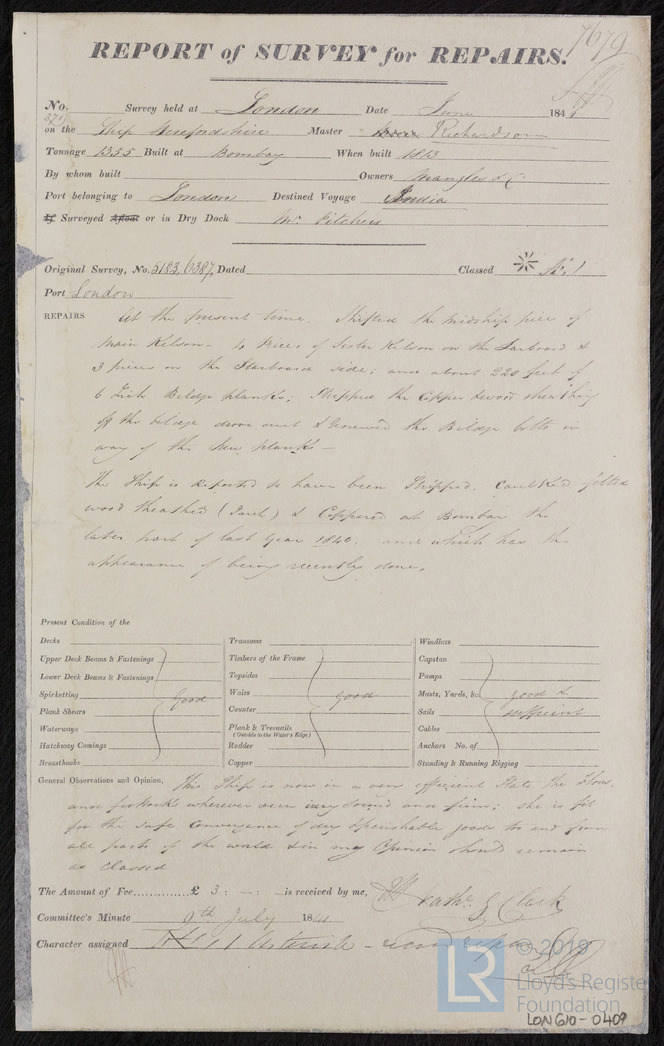 7679
REPORT of SURVEY for REPAIRS.
No. 371 Survey held at London Date June 1841
on the Ship Herefordshire Master Richardson
Tonnage 1355 Built at Bombay When built 1813
By whom built Owners Mangles & Co
Port belonging to London Destined Voyage India
If Surveyed Afloat or in Dry Dock Mr. Pitchers
Original Survey, No. 5183. 6387. Dated Classed Æ. 1
Port London
REPAIRS At the present time. Shifted the midship piece of
Main Kelson - 4 Pieces of Sister Kelson on the Larboard &
3 pieces on the Starboard side; and about 220 feet of
6 Inch Bildge planks; Stripped the Copper & wood sheathing
off the bildge down and & renewed the Bildge bolts in
way of the New planks -
The Ship is Reported to have been Stripped. Caulked felted
wood sheathed & Coppered at Bombay the
later part of last year 1840. and which has the
appearance of being recently done.
Present Condition of the
Decks
Upper Deck Beams & Fastenings
Lower Deck Beams & Fastenings
Spirketting good
Plank Shears
Waterways
Hatchway Comings
Breasthooks
Transoms
Timbers of the Frame
Topsides
Wales good
Counter
Plank & Treenails
(Outside to the Water's Edge)
Rudder
Copper
Windlass
Capstan
Pumps
Masts, Yards, &c. good &
Sails sufficient
Cables
Anchors No. of
Standing & Running Rigging
General Observations and Opinion, This Ship is now in a very efficient State the floors
and futtocks wherever seen very sound and firm; she is fit
for the safe Conveyance of dry & perishable goods to and from
all parts of the world & in my Opinion should remain
as Classed
The Amount of Fee............£ 3 : — : is received by me, Nathl. S Clark
Committee's Minute 9th July 1841
Character assigned Æ 1 Asterisk -
© 2019
LR
Lloyd's Register
Foundation
LON610-0409